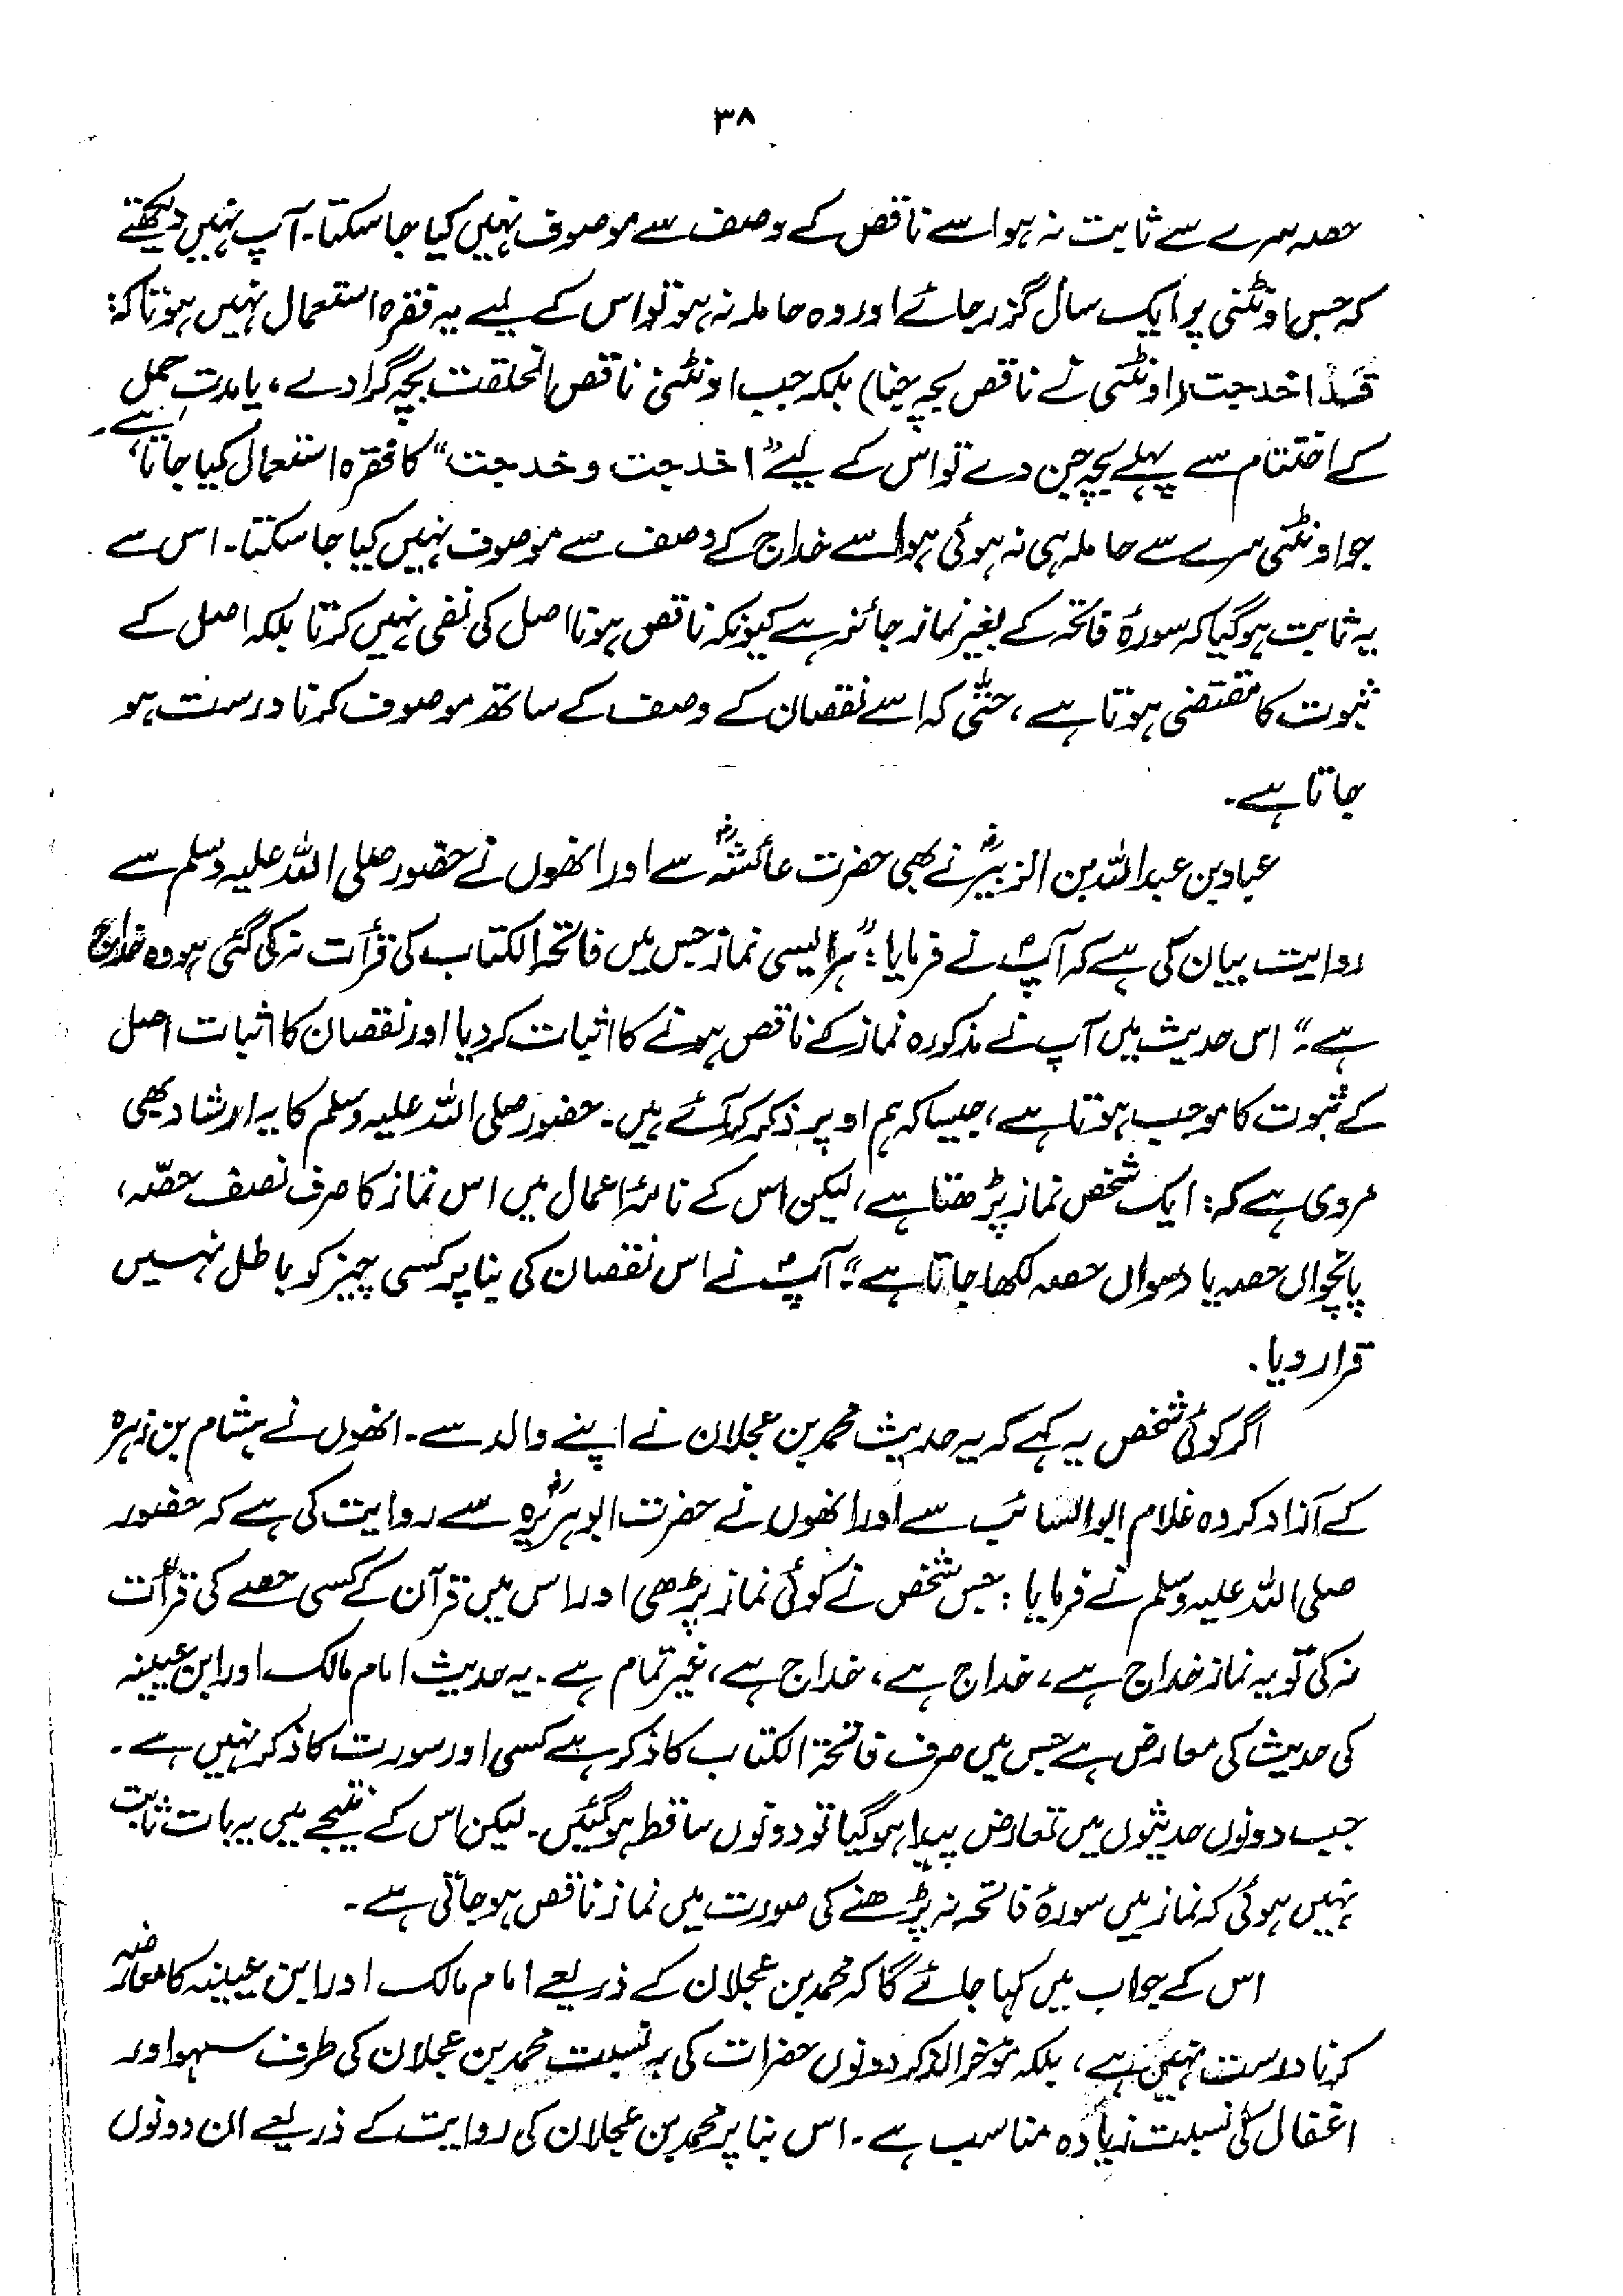 ۳۸
حصہ سرے سے ثابت نہ ہو اسے ناقص کے وصف سے موصوف نہیں کیا جا سکتا۔ آپ نہیں دیکھتے
کہ جس اونٹنی پر ایک سال گزر جائے اور وہ حاملہ نہ ہو تو اس کے لیے یہ فقرہ استعمال نہیں ہوتا کہ:
قد اخدجت (اونٹنی نے ناقص بچہ جنا) بلکہ جب اونٹنی ناقص الخلقت بچہ گرا دے، یا مدتِ حمل
کے اختتام سے پہلے بچہ جن دے تو اس کے لیے "اخدجت وخدجت" کا فقرہ استعمال کیا جاتا ہے۔
جو اونٹنی سرے سے حاملہ ہی نہ ہوئی ہو اسے خداج کے وصف سے موصوف نہیں کیا جا سکتا۔ اس سے
یہ ثابت ہو گیا کہ سورۂ فاتحہ کے بغیر نماز جائز ہے کیونکہ ناقص ہونا اصل کی نفی نہیں کرتا بلکہ اصل کے
ثبوت کا مقتضی ہوتا ہے، حتّٰی کہ اسے نقصان کے وصف کے ساتھ موصوف کرنا درست ہو
جاتا ہے۔
عباد بن عبداللہ بن الزبیرؓ نے بھی حضرت عائشہؓ سے اور انھوں نے حضور صلی اللہ علیہ وسلم سے
روایت بیان کی ہے کہ آپؐ نے فرمایا: "ہر ایسی نماز جس میں فاتحۃ الکتاب کی قرأت نہ کی گئی ہو وہ خداج
ہے۔" اس حدیث میں آپ نے مذکورہ نماز کے ناقص ہونے کا اثبات کر دیا اور نقصان کا اثبات اصل
کے ثبوت کا موجب ہوتا ہے، جیسا کہ ہم اوپر ذکر کر آئے ہیں۔ حضور صلی اللہ علیہ وسلم کا یہ ارشاد بھی
مروی ہے کہ: ایک شخص نماز پڑھتا ہے، لیکن اس کے نامۂ اعمال میں اس نماز کا صرف نصف حصّہ،
پانچواں حصہ یا دسواں حصہ لکھا جاتا ہے"۔ آپؐ نے اس نقصان کی بنا پر کسی چیز کو باطل نہیں
قرار دیا۔
اگر کوئی شخص یہ کہے کہ یہ حدیث محمد بن عجلان نے اپنے والد سے۔ انھوں نے ہشام بن زہرہ
کے آزاد کردہ غلام ابوالسائب سے اور انھوں نے حضرت ابوہریرہؓ سے روایت کی ہے کہ حضور
صلی اللہ علیہ وسلم نے فرمایا: جس شخص نے کوئی نماز پڑھی اور اس میں قرآن کے کسی حصے کی قرأت
نہ کی تو یہ نماز خداج ہے، خداج ہے، خداج ہے، غیر تمام ہے۔ یہ حدیث امام مالک اور ابن عیینہ
کی حدیث کی معارض ہے جس میں صرف فاتحۃ الکتاب کا ذکر ہے کسی اور سورت کا ذکر نہیں ہے۔
جب دونوں حدیثوں میں تعارض پیدا ہو گیا تو دونوں ساقط ہو گئیں۔ لیکن اس کے نتیجے میں یہ بات ثابت
نہیں ہوئی کہ نماز میں سورۂ فاتحہ نہ پڑھنے کی صورت میں نماز ناقص ہو جاتی ہے۔
اس کے جواب میں کہا جائے گا کہ محمد بن عجلان کے ذریعے امام مالک اور ابن عیینہ کا معارضہ
کرنا درست نہیں ہے، بلکہ مؤخر الذکر دونوں حضرات کی بہ نسبت محمد بن عجلان کی طرف سہو اور
اغفال کی نسبت زیادہ مناسب ہے۔ اس بنا پر محمد بن عجلان کی روایت کے ذریعے ان دونوں